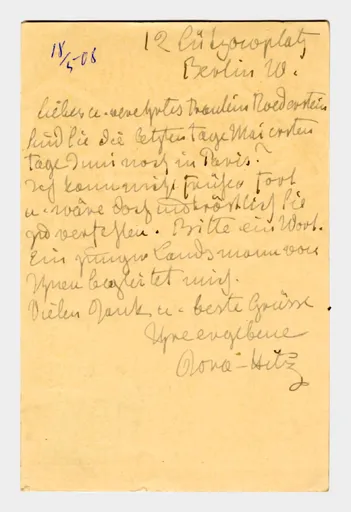 18/5-08
12 Lützowplatz
Berlin W.
Liebes u. verehrtes Fräulein Roederstein
Sind Sie die letzten Tage Mai ersten
Tage Juni noch in Paris?
Ich komme nicht früher fort
u. wäre doch untröstlich Sie
zu verfehlen. Bitte ein Wort.
Ein junger Landsmann von
Ihnen begleitet mich.
Vielen Dank u. beste Grüsse
Ihre ergebene
Dora Hitz